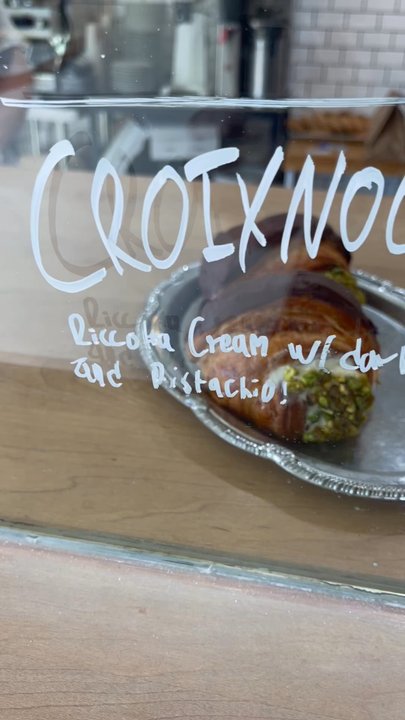 CROIXNO
Riccota Cream w/ dar
and Pistachio!